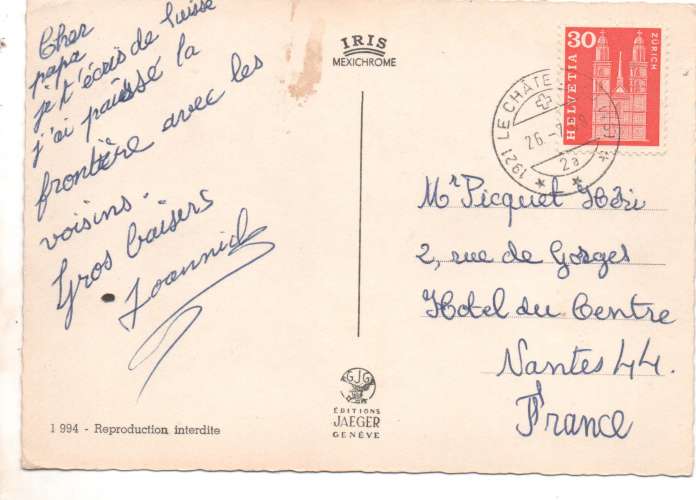 Cher
papa
je t'écris de Suisse
j'ai passé la
frontière avec les
voisins.
Gros baisers
Joannick
IRIS
MEXICHROME
30
HELVETIA
ZÜRICH
1921 LE CHÂTE
26.-7.
2a
Mr Picquet Héri
2, rue de Gorges
Hotel du Centre
Nantes 44.
France
GJG
ÉDITIONS
JAEGER
GENÈVE
1 994 - Reproduction interdite